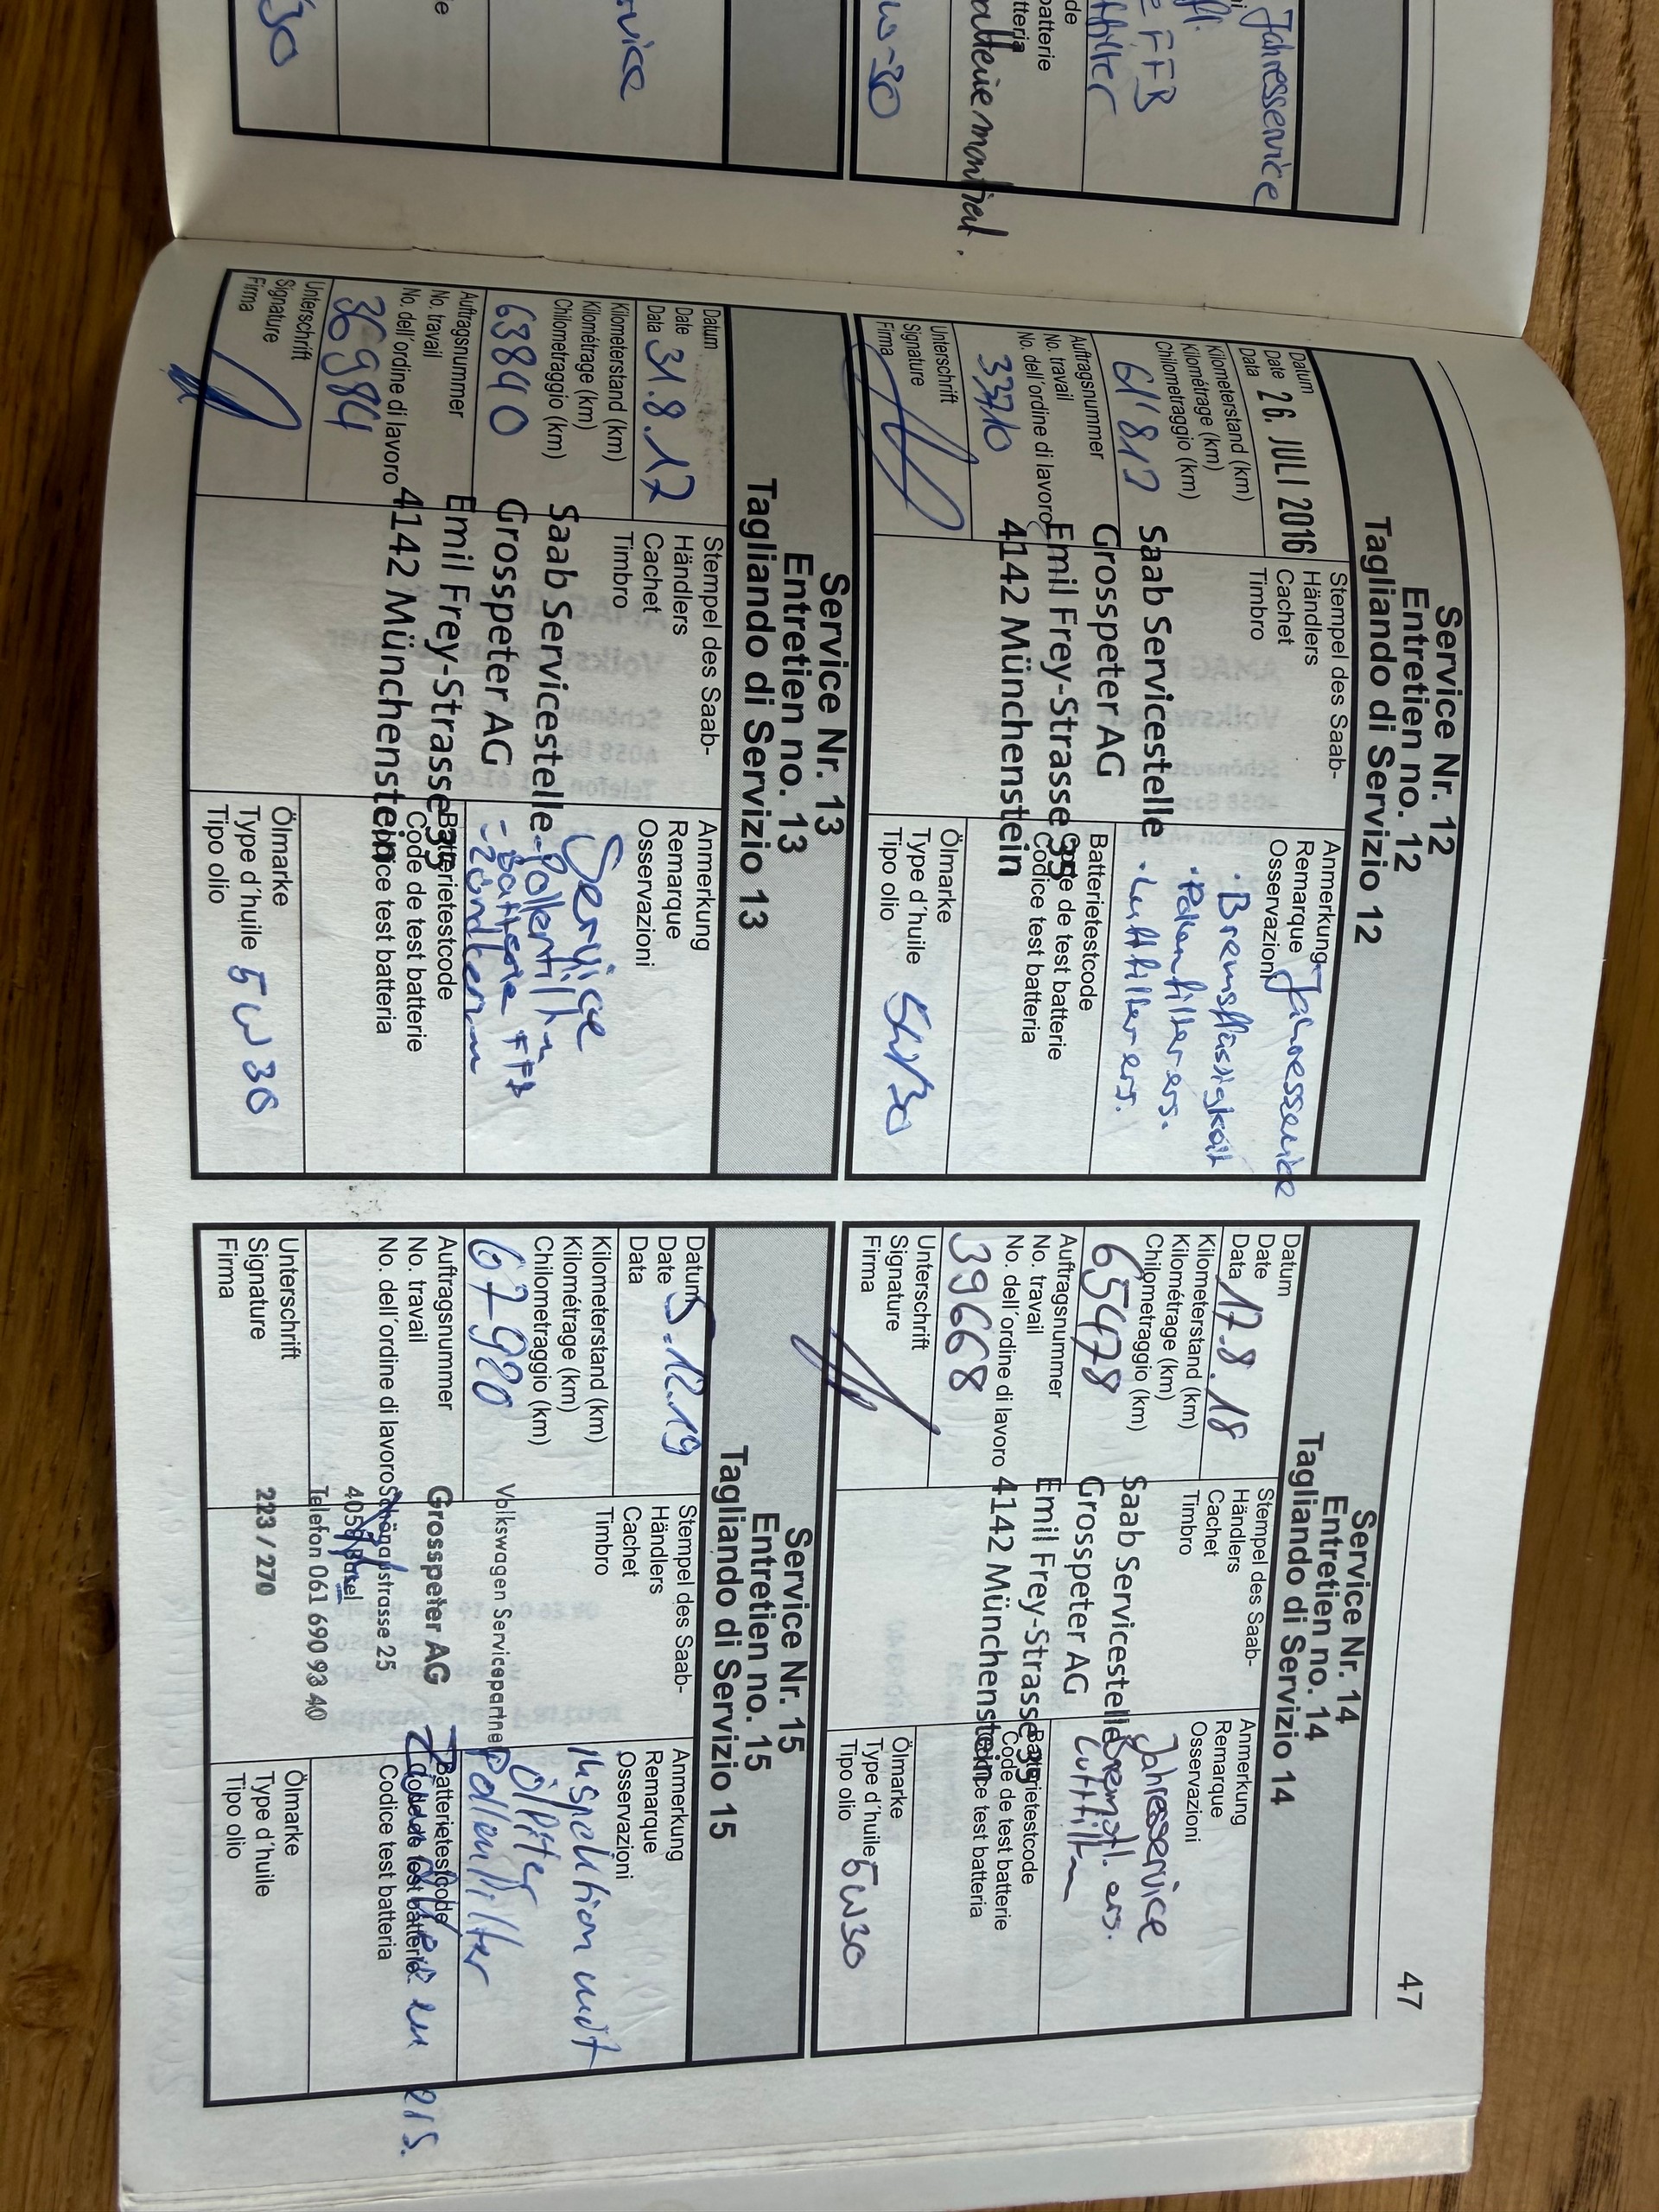 Jahresservice
e FFB
de
batterie
tteria
batterie montiert.
w-30
rvice
30
47
Service Nr. 12
Entretien no. 12
Tagliando di Servizio 12
Datum
Date 26. JULI 2016
Data
Kilometerstand (km)
Kilométrage (km)
Chilometraggio (km)
61'817
Auftragsnummer
No. travail
No. dell'ordine di lavoro
33710
Unterschrift
Signature
Firma
Stempel des Saab-
Händlers
Cachet
Timbro
Saab Servicestelle
Grosspeter AG
Emil Frey-Strasse 35
4142 Münchenstein
Anmerkung - Jahresservice
Remarque
Osservazioni
· Bremsflüssigkeit
· Pollenfilter ers.
· Luftfilter ers.
Batterietestcode
Code de test batterie
Codice test batteria
Ölmarke
Type d'huile
Tipo olio
5W30
Service Nr. 13
Entretien no. 13
Tagliando di Servizio 13
Datum
Date 31.8.17
Data
Kilometerstand (km)
Kilométrage (km)
Chilometraggio (km)
63840
Auftragsnummer
No. travail
No. dell'ordine di lavoro
36984
Unterschrift
Signature
Firma
Stempel des Saab-
Händlers
Cachet
Timbro
Saab Servicestelle
Grosspeter AG
Emil Frey-Strasse 35
4142 Münchenstein
Anmerkung
Remarque
Osservazioni
Service
- Pollenfilter
- Batterie FFB
- Zündkerzen
Batterietestcode
Code de test batterie
Codice test batteria
Ölmarke
Type d'huile 5W30
Tipo olio
Service Nr. 14
Entretien no. 14
Tagliando di Servizio 14
Datum
Date
Data 17.8.18
Kilometerstand (km)
Kilométrage (km)
Chilometraggio (km)
65478
Auftragsnummer
No. travail
No. dell'ordine di lavoro
39668
Unterschrift
Signature
Firma
Stempel des Saab-
Händlers
Cachet
Timbro
Saab Servicestelle
Grosspeter AG
Emil Frey-Strasse 35
4142 Münchenstein
Anmerkung
Remarque
Osservazioni
Jahresservice
Bremsfl. ers.
Luftfilter
Batterietestcode
Code de test batterie
Codice test batteria
Ölmarke
Type d'huile 5W30
Tipo olio
Service Nr. 15
Entretien no. 15
Tagliando di Servizio 15
Datum
Date 5.12.19
Data
Kilometerstand (km)
Kilométrage (km)
Chilometraggio (km)
67920
Auftragsnummer
No. travail
No. dell'ordine di lavoro
Unterschrift
Signature
Firma
Stempel des Saab-
Händlers
Cachet
Timbro
Volkswagen Servicepartner
Grosspeter AG
Schönaustrasse 25
4058 Basel
Telefon 061 690 93 40
223 / 270
Anmerkung
Remarque
Osservazioni
Inspektion mit
Ölfilter
Pollenfilter
ers.
Batterietestcode
Code de test batterie
Codice test batteria
Ölmarke
Type d'huile
Tipo olio